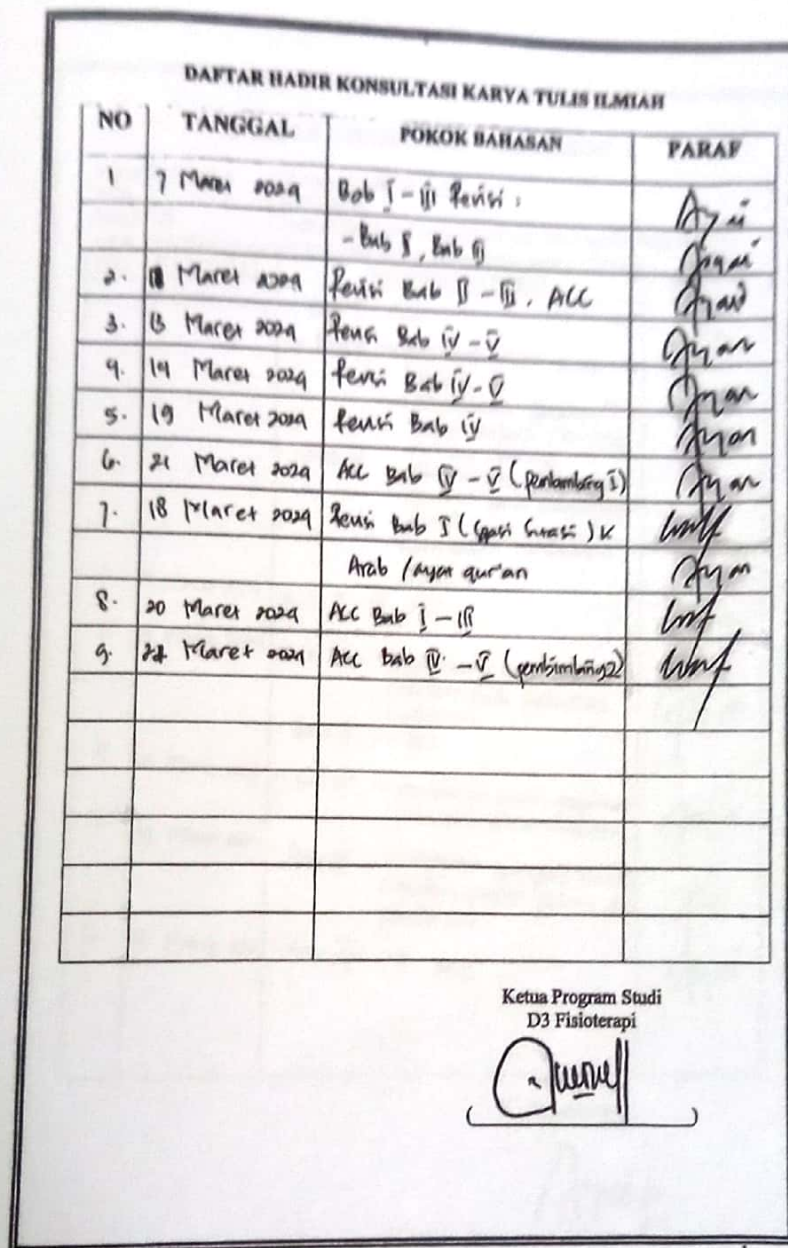 DAFTAR HADIR KONSULTASI KARYA TULIS ILMIAH
NO TANGGAL POKOK BAHASAN PARAF
1 7 Maret 2024 Bab I - III Revisi :
- Bab I, Bab II
2. Maret 2024 Revisi Bab II - III, ACC
3. 13 Maret 2024 Revisi Bab IV - V
4. 14 Maret 2024 Revisi Bab IV - V
5. 19 Maret 2024 Revisi Bab IV
6. 21 Maret 2024 ACC Bab IV - V (pembimbing I)
7. 18 Maret 2024 Revisi Bab I
Arab / ayat qur'an
8. 20 Maret 2024 ACC Bab I - III
9. Maret 2024 ACC Bab IV - V (pembimbing 2)
Ketua Program Studi
D3 Fisioterapi